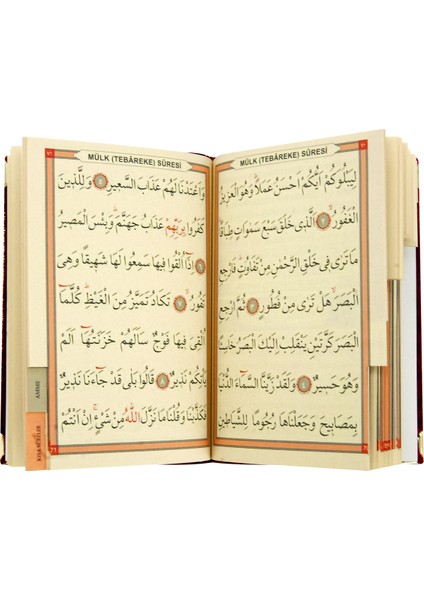 ٧٠
MÜLK (TEBÂREKE) SÛRESİ
لِيَبْلُوَكُمْ اَيُّكُمْ اَحْسَنُ عَمَلًاۜ وَهُوَ الْعَزِيزُ
الْغَفُورُۙ ﴿٢﴾ اَلَّذٖى خَلَقَ سَبْعَ سَمٰوَاتٍ طِبَاقًاۜ
مَا تَرٰى فٖى خَلْقِ الرَّحْمٰنِ مِنْ تَفَاوُتٍۜ فَارْجِعِ
الْبَصَرَۙ هَلْ تَرٰى مِنْ فُطُورٍ ﴿٣﴾ ثُمَّ ارْجِعِ
الْبَصَرَ كَرَّتَيْنِ يَنْقَلِبْ اِلَيْكَ الْبَصَرُ خَاسِئًا
وَهُوَ حَسٖيرٌ ﴿٤﴾ وَلَقَدْ زَيَّنَّا السَّمَٓاءَ الدُّنْيَا
بِمَصَابٖيحَ وَجَعَلْنَاهَا رُجُومًا لِلشَّيَاطٖينِ
٧١
MÜLK (TEBÂREKE) SÛRESİ
وَاَعْتَدْنَا لَهُمْ عَذَابَ السَّعٖيرِ ﴿٥﴾ وَلِلَّذٖينَ
كَفَرُوا بِرَبِّهِمْ عَذَابُ جَهَنَّمَۜ وَبِئْسَ الْمَصٖيرُ
﴿٦﴾ اِذَٓا اُلْقُوا فٖيهَا سَمِعُوا لَهَا شَهٖيقًا وَهِىَ
تَفُورُۙ ﴿٧﴾ تَكَادُ تَمَيَّزُ مِنَ الْغَيْظِۜ كُلَّمَٓا
اُلْقِىَ فٖيهَا فَوْجٌ سَاَلَهُمْ خَزَنَتُهَٓا اَلَمْ
يَاْتِكُمْ نَذٖيرٌ ﴿٨﴾ قَالُوا بَلٰى قَدْ جَٓاءَنَا نَذٖيرٌ
فَكَذَّبْنَا وَقُلْنَا مَا نَزَّلَ اللّٰهُ مِنْ شَىْءٍۚ اِنْ اَنْتُمْ
71
AMME
KISA SÛRELER